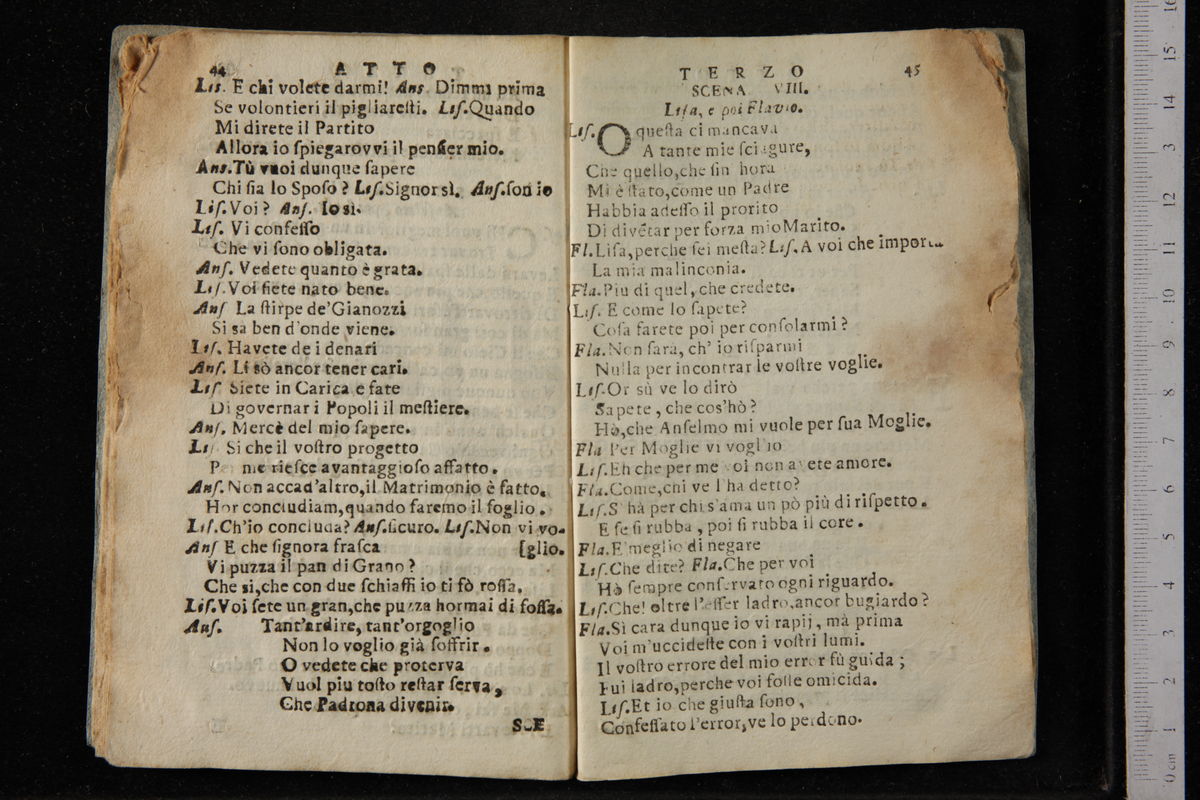 44 ATTO
Lis. E chi volete darmi! Ans. Dimmi prima
Se volontieri il pigliaresti. Lis.Quando
Mi direte il Partito
Allora io spiegarovvi il pensier mio.
Ans.Tù vuoi dunque sapere
Chi sia lo Sposo? Lis.Signor sì. Ans.son io
Lis.Voi? Ans. Io sì.
Lis. Vi confesso
Che vi sono obligata.
Ans. Vedete quanto è grata.
Lis.Voi siete nato bene.
Ans La stirpe de'Gianozzi
Si sa ben d'onde viene.
Lis. Havete de i denari
Ans. Li sò ancor tener cari.
Lis Siete in Carica e fate
Di governar i Popoli il mestiere.
Ans. Mercè del mio sapere.
Lis Si che il vostro progetto
me riesce avantaggioso affatto.
Ans. Non accad'altro,il Matrimonio è fatto.
Hor concludiam,quando faremo il foglio.
Lis.Ch'io concluda? Ans.sicuro. Lis.Non vi vo-
Ans E che signora frasca [glio.
Vi puzza il pan di Grano?
Che sì,che con due schiaffi io ti fò rossa.
Lis.Voi sete un gran,che puzza hormai di fossa.
Ans. Tant'ardire, tant'orgoglio
Non lo voglio già soffrir.
O vedete che proterva
Vuol piu tosto restar serva,
Che Padrona divenir.
SCE
TERZO 45
SCENA VIII.
Lisa, e poi Flavio.
Lis. O questa ci mancava
A tante mie sciagure,
Che quello,che sin hora
Mi è stato,come un Padre
Habbia adesso il prorito
Di divẽtar per forza mio Marito.
Fl. Lisa,perche sei mesta? Lis. A voi che importa
La mia malinconia.
Fla.Piu di quel, che credete.
Lis. E come lo sapete?
Cosa farete poi per consolarmi?
Fla.Non sarà, ch' io risparmi
Nulla per incontrar le vostre voglie.
Lis.Or sù ve lo dirò
Sapete, che cos'hò?
Hò,che Anselmo mi vuole per sua Moglie.
Fla Per Moglie vi vogl'io
Lis.Eh che per me voi non avete amore.
Fla.Come,chi ve l'ha detto?
Lis.S' hà per chi s'ama un pò più di rispetto.
E se si rubba, poi si rubba il core.
Fla.E' meglio di negare
Lis.Che dite? Fla.Che per voi
Hò sempre conservato ogni riguardo.
Lis.Che! oltre l'esser ladro,ancor bugiardo?
Fla.Sì cara dunque io vi rapij, mà prima
Voi m'uccideste con i vostri lumi.
Il vostro errore del mio error fù guida;
Fui ladro,perche voi foste omicida.
Lis.Et io che giusta sono,
Confessato l'error,ve lo perdono.